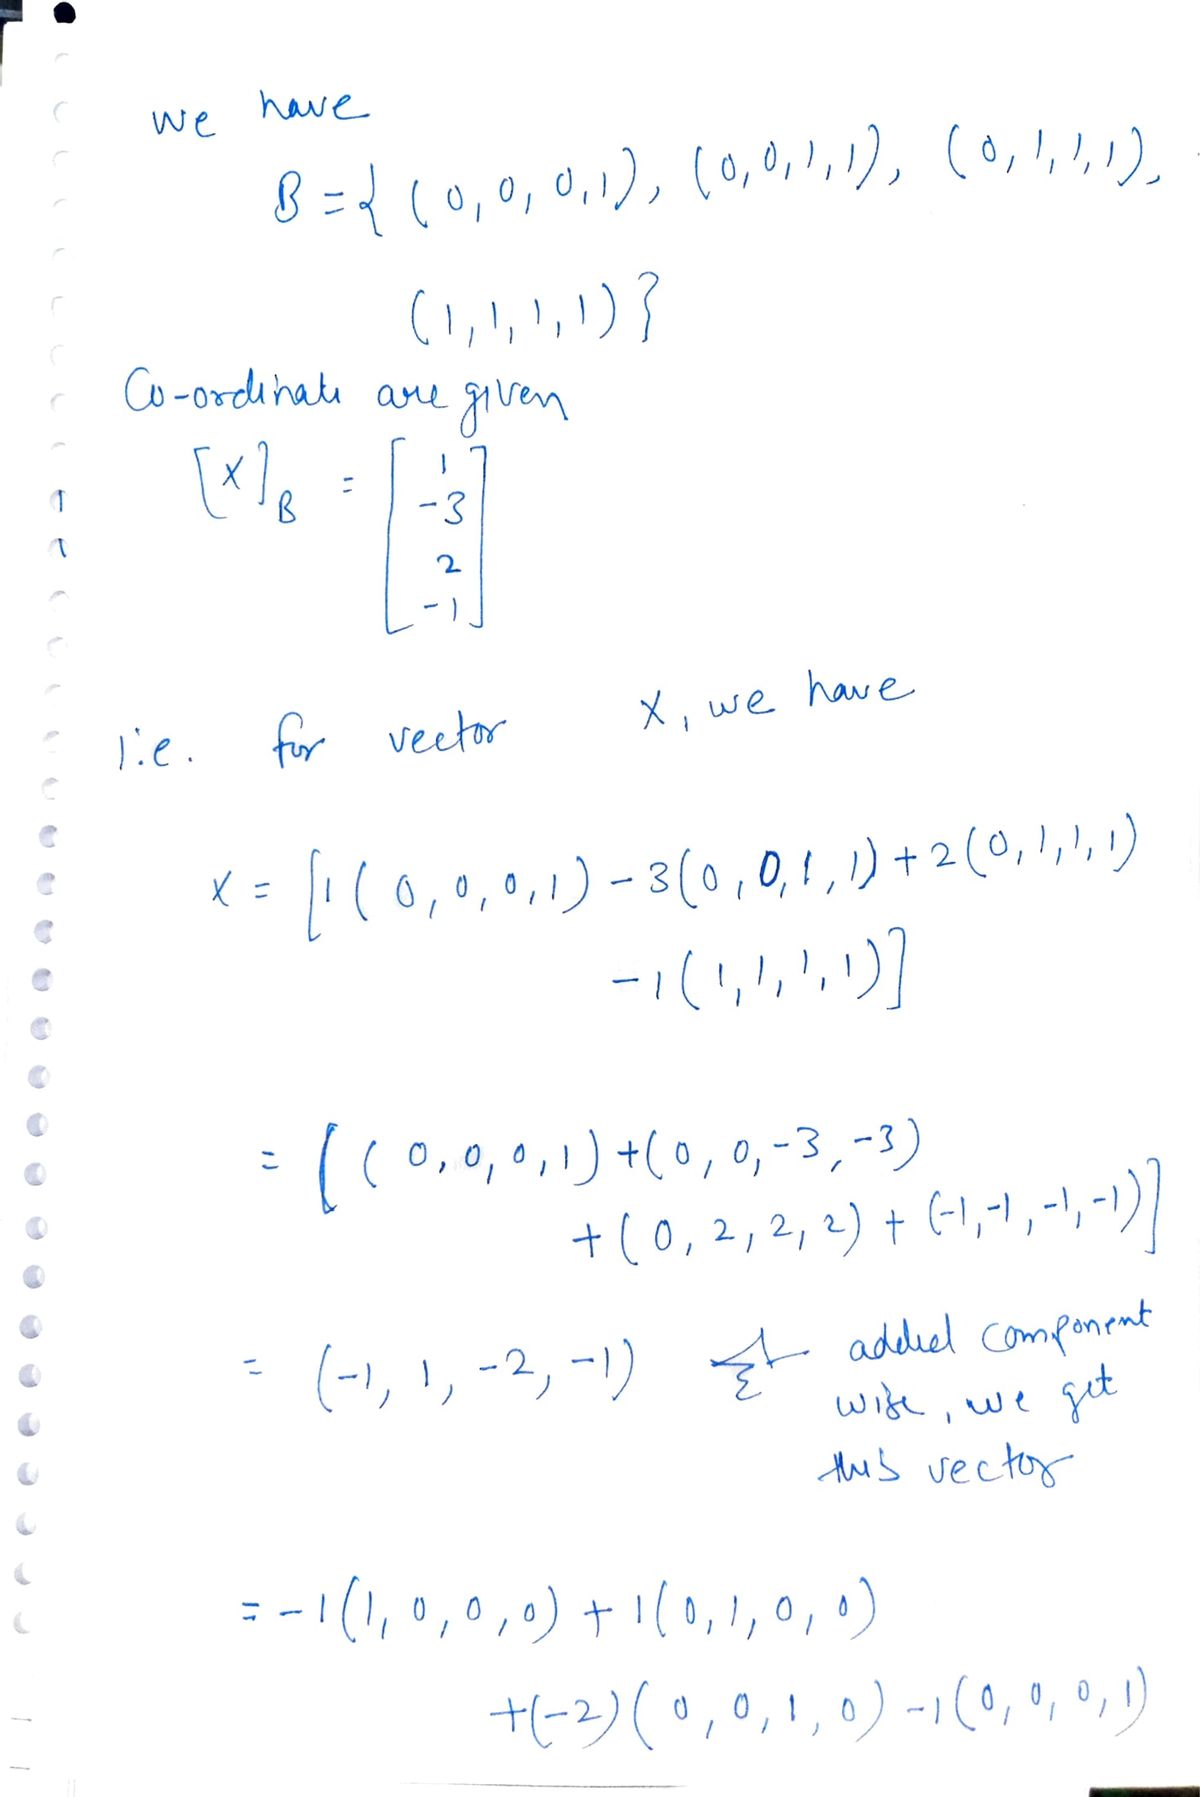 we have
B = { (0, 0, 0, 1), (0, 0, 1, 1), (0, 1, 1, 1),
(1, 1, 1, 1) }
Co-ordinate are given
[X]_B = [ 1
-3
2
-1 ]
i.e. for vector X, we have
X = [ 1 ( 0, 0, 0, 1 ) - 3 ( 0, 0, 1, 1 ) + 2 ( 0, 1, 1, 1 )
- 1 ( 1, 1, 1, 1 ) ]
= [ ( 0, 0, 0, 1 ) + ( 0, 0, -3, -3 )
+ ( 0, 2, 2, 2 ) + ( -1, -1, -1, -1 ) ]
= ( -1, 1, -2, -1 ) added component
wise, we get
this vector
= -1 ( 1, 0, 0, 0 ) + 1 ( 0, 1, 0, 0 )
+ (-2) ( 0, 0, 1, 0 ) - 1 ( 0, 0, 0, 1 )